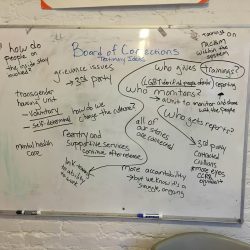 Board of Corrections
Testimony Ideas
how do
people on
the inside stay
involved
grievance issues
→ 3rd party
Transgender
housing unit
- Voluntary
- Self-determined
how do we
change the culture?
mental health
care
Reentry and
Supportive Services
continue after release
all of
our stories
are connected
More accountability
→ but we know it's a
struggle ongoing
training on
racism
within the
system
who gives trainings?
reporting
who monitors?
→ a unit to monitor and share
with the people
who gets reporting?
3rd party
Contracted
Civilians
more eyes